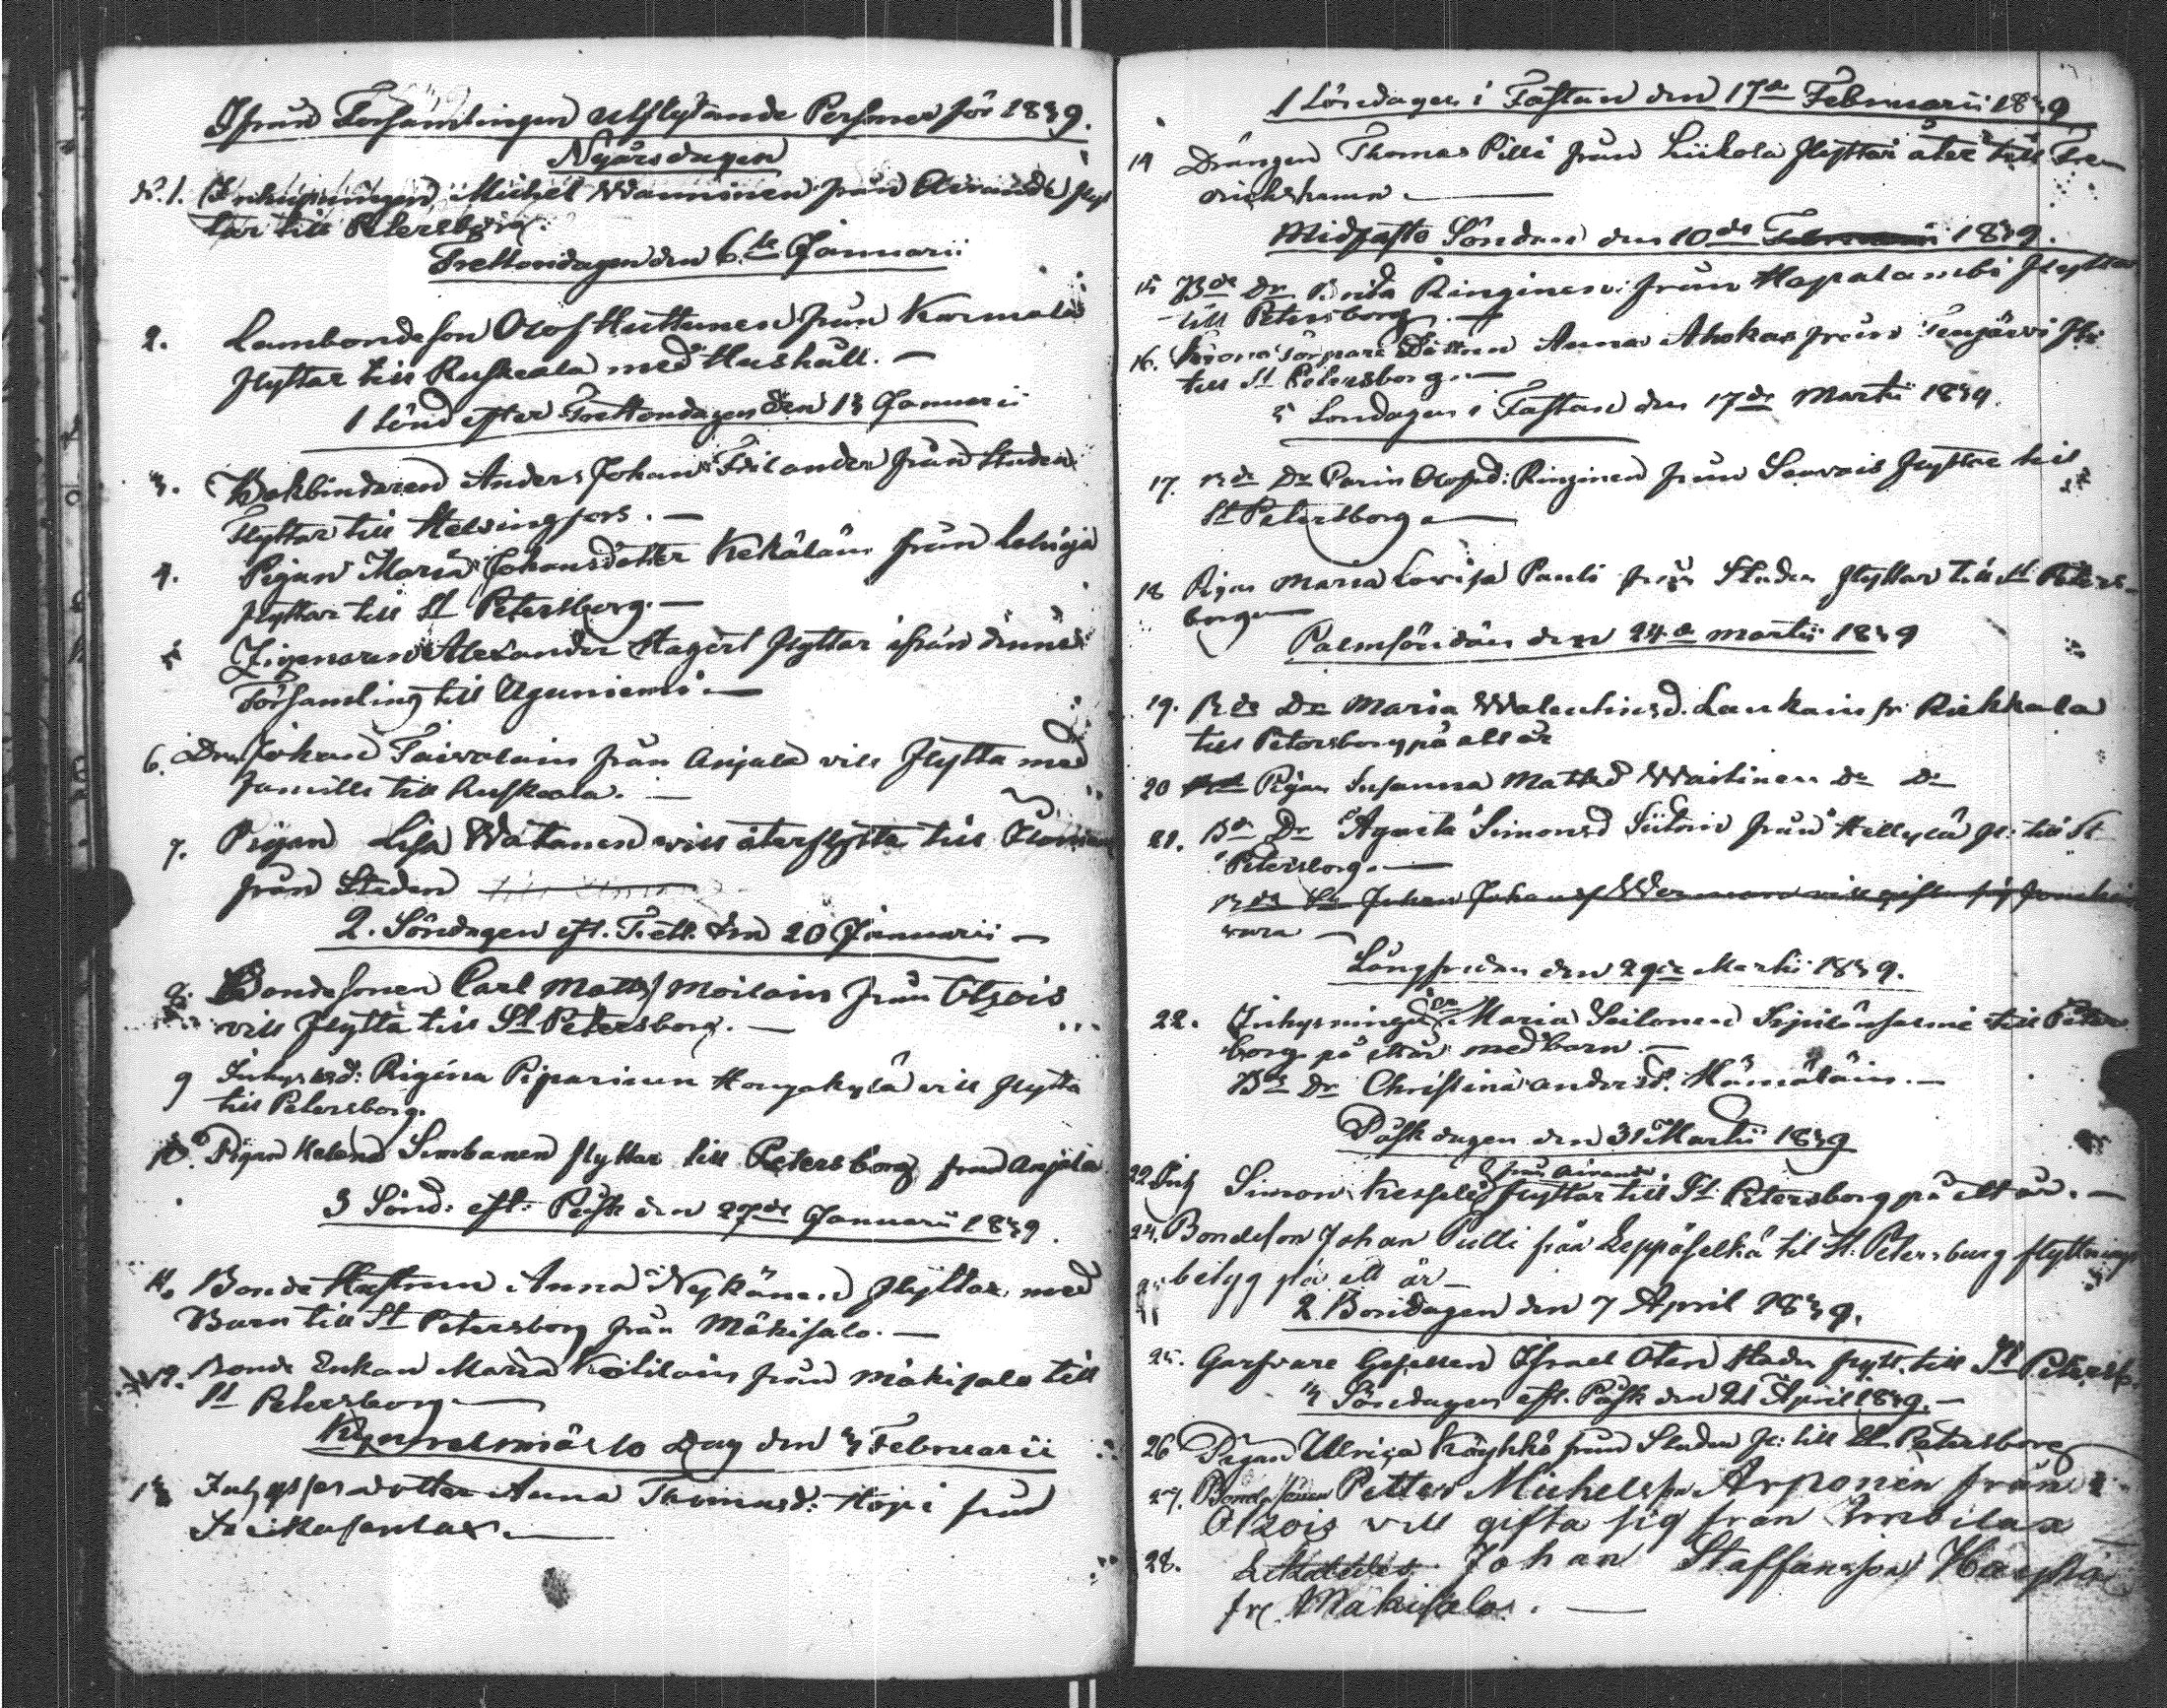 Ifrån Församlingen utflytande Personer för 1839.
Nyårsdagen
N. 1. Michel Wanninen från Airanda flyt
tar till Petersborg.
Trettondagen den 6te Januarii
2. Lambondeson Olof Huttunen från Karmala
flyttar till Ruskeala med Hushåll. —
1 Sönd efter Trettondagen den 13 Januarii
3. Bokbindaren Anders Johan Frilander från Staden
flyttar till Helsingfors. —
4. Pigan Maria Johansdotter Kekäläin från
flyttar till St Petersborg. —
5 Zigenaren Alexander Hagert flyttar ifrån denna
Församling till Uguniemi. —
6. Dr. Johan Taivalain från Anjala vill flytta med
famille till Ruskeala. —
7. Pigan Lisa Wätänen vill återflytta till
från Staden
2. Söndagen eft. Trett. den 20 Januarii —
8. Bondesonen Carl Mattss Moilain från Otsois
vill flytta till St Petersborg. —
9 Inhys: d: Regina Piparinen Honkakylä vill flytta
till Petersborg.
10. Pigan Helena Simbanen flyttar till Petersborg från Anjala.
3 Sönd: eft: Påsk den 27de Januarii 1839.
11. Bonde Hustrun Anna Nykänen flyttar med
Barn till St Petersborg från Mäkisalo. —
12. Bonde Enkan Maria Koitilain från Mäkisalo till
St Petersborg —
Kynnelsmässo Dag den 3 Februarii
13 Inhysesdotter Anna Thomasd: Hopi från
1 Söndagen i Fastan den 17de Februarii 1839
14 Drängen Thomas Pilli från Liikola flyttar åter till Fre-
drickshamn —
Midfasto Söndan den 10de Februarii 1839.
15 Bde Dr Brita Ringinen från Hapalambi flyttar
till Petersborg. —
16. Anna Ahokas från Tenjärvi fl:
till St Petersborg. —
5 Söndagen i Fastan den 17de Martii 1839.
17. Bde Dr Carin Olofsd: Ringinen från flyttar till
St Petersborg —
18 Pigan Maria Lovisa Pauli från Staden flyttar till St Peters-
borg —
Palmsöndan den 24de Martii 1839
19. Bde Dr Maria Walentinsd. Laukain fr Riekkala
till Petersborg på ett år
20 Pigan Susanna Mattsd Waitinen Do Do
21. Bde Dr Agneta Simonsd Siitoin från Hellylä fl: till St
Petersborg. —
Bde Sn Johan Johanss vill gifta sig
wara —
Långfredan den 29de Martii 1839.
22. Maria Seilonen till Peters
borg på ett år med barn. —
Bde Dr Christina Andersd. Hämäläin. —
Påskdagen den 31 Martii 1839
22. Inh Simon Kesseli från Airanda flyttar till St Petersborg på ett år. —
24. Bondeson Johan Pulli från Leppäselkä til St. Petersburg flyttnings
betyg på ett år —
2 Böndagen den 7 April 1839.
25. Garfvare Gesellen Israel Oten Staden flytt. till St Petersb.
3 Söndagen eft. Påsk den 21 April 1839. —
26 Pigan Ulrica Köykkö från Staden fl: till St Petersborg
27. Bondesonen Petter Michelsson Arponen från
Otsois vill gifta sig från Imbilax
28. Johan Staffansson
fr. Mäkisalo. —